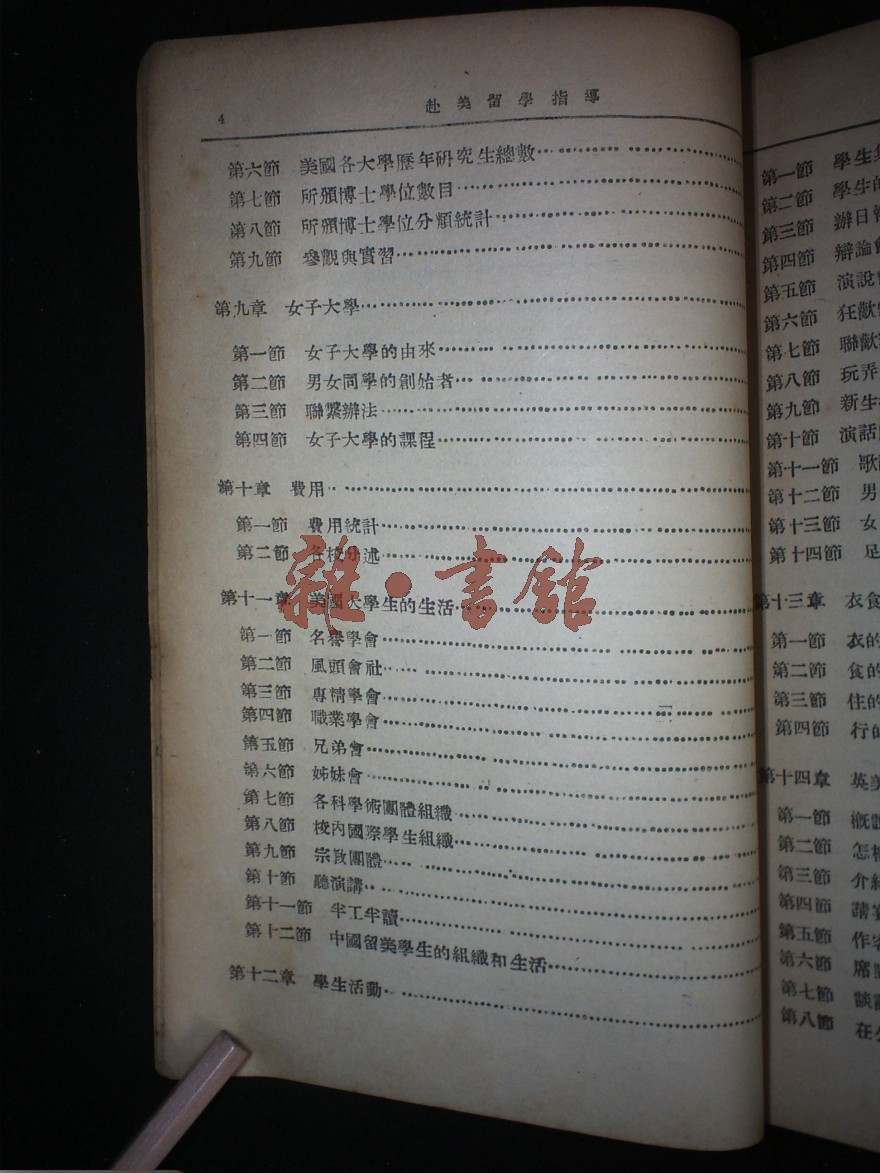 4
赴美留學指導
第六節 美國各大學歷年研究生總數
第七節 所頒博士學位數目
第八節 所頒博士學位分類統計
第九節 參觀與實習
第九章 女子大學
第一節 女子大學的由來
第二節 男女同學的創始者
第三節 聯繫辦法
第四節 女子大學的課程
第十章 費用
第一節 費用統計
第二節 各校分述
第十一章 美國大學生的生活
第一節 名譽學會
第二節 風頭會社
第三節 專精學會
第四節 職業學會
第五節 兄弟會
第六節 姊妹會
第七節 各科學術團體組織
第八節 校內國際學生組織
第九節 宗教團體
第十節 聽演講
第十一節 半工半讀
第十二節 中國留美學生的組織和生活
第十二章 學生活動
雜·書館
第一節 學生
第二節 學生的
第三節 辦日
第四節 辯論
第五節 演說
第六節 狂歡
第七節 聯歡
第八節 玩弄
第九節 新生
第十節 演話
第十一節 歌
第十二節 男
第十三節 女
第十四節 足
第十三章 衣食
第一節 衣的
第二節 食的
第三節 住的
第四節 行的
第十四章 英美
第一節 概
第二節 怎
第三節 介紹
第四節 請
第五節 作客
第六節 席
第七節 談
第八節 在